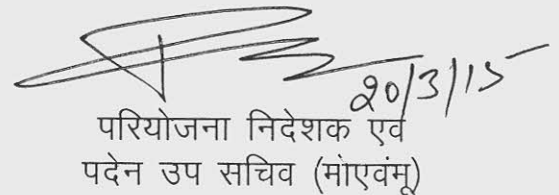 20/3/15
परियोजना निदेशक एवं
पदेन उप सचिव (मांएवंमू)